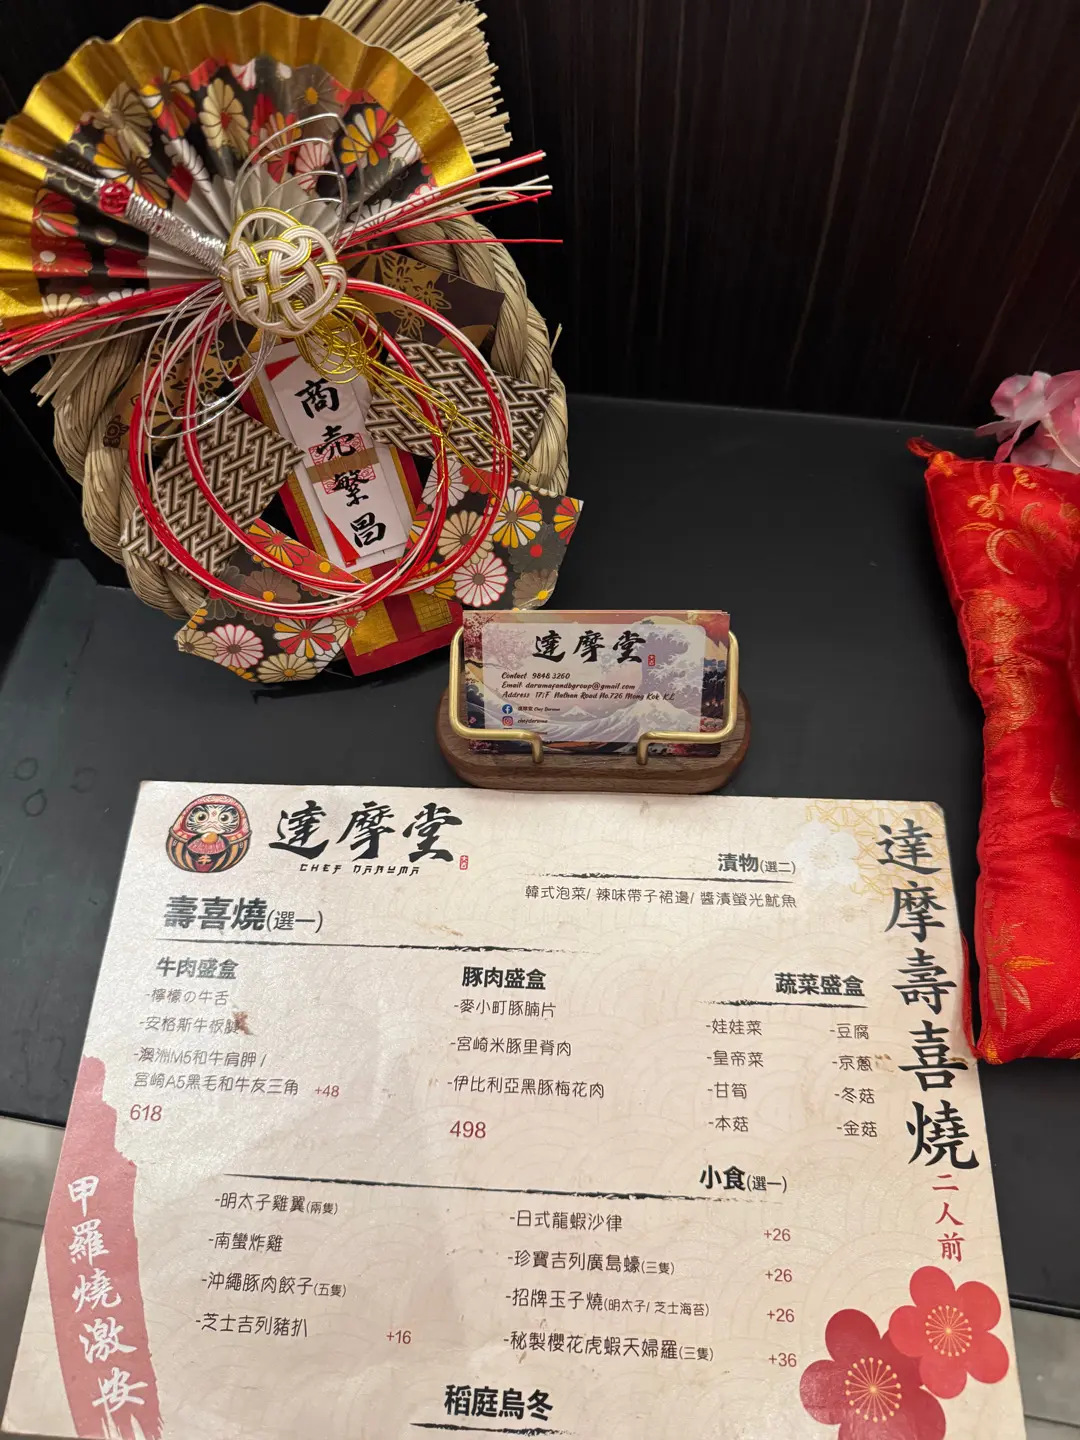 商売繁昌
達摩堂
Contact 9848 3260
Email darumafandbgroup@gmail.com
Address 17/F Nathan Road No.726 Mong Kok K.L
達摩堂 Chef Daruma
chefdaruma
達摩堂
CHEF DARUMA
牛
漬物(選二)
韓式泡菜/ 辣味帶子裙邊/ 醬漬螢光魷魚
壽喜燒(選一)
牛肉盛盒
-檸檬の牛舌
-安格斯牛板腱
-澳洲M5和牛肩胛 /
宮崎A5黑毛和牛友三角 +48
618
豚肉盛盒
-麥小町豚腩片
-宮崎米豚里脊肉
-伊比利亞黑豚梅花肉
498
蔬菜盛盒
-娃娃菜 -豆腐
-皇帝菜 -京蔥
-甘筍 -冬菇
-本菇 -金菇
小食(選一)
-明太子雞翼(兩隻)
-南蠻炸雞
-沖繩豚肉餃子(五隻)
-芝士吉列豬扒 +16
-日式龍蝦沙律 +26
-珍寶吉列廣島蠔(三隻) +26
-招牌玉子燒(明太子/ 芝士海苔) +26
-秘製櫻花虎蝦天婦羅(三隻) +36
稻庭烏冬
達摩壽喜燒
二人前
甲羅燒激安